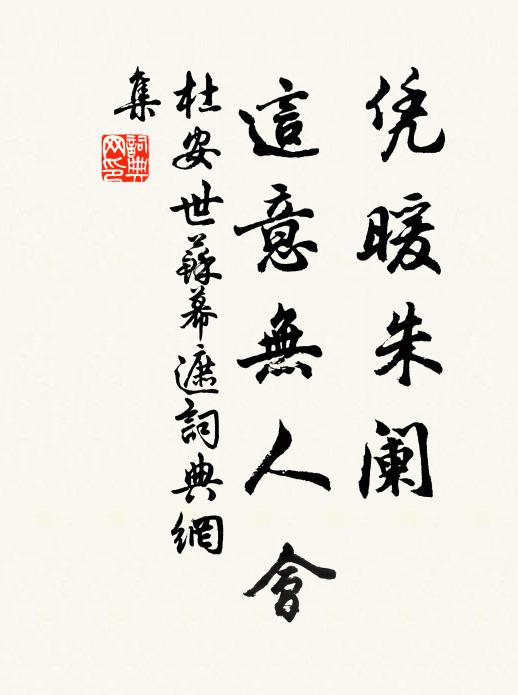 凭暖朱阑
這意無人會
杜安世蘇幕遮詞典網
集
詞典網印